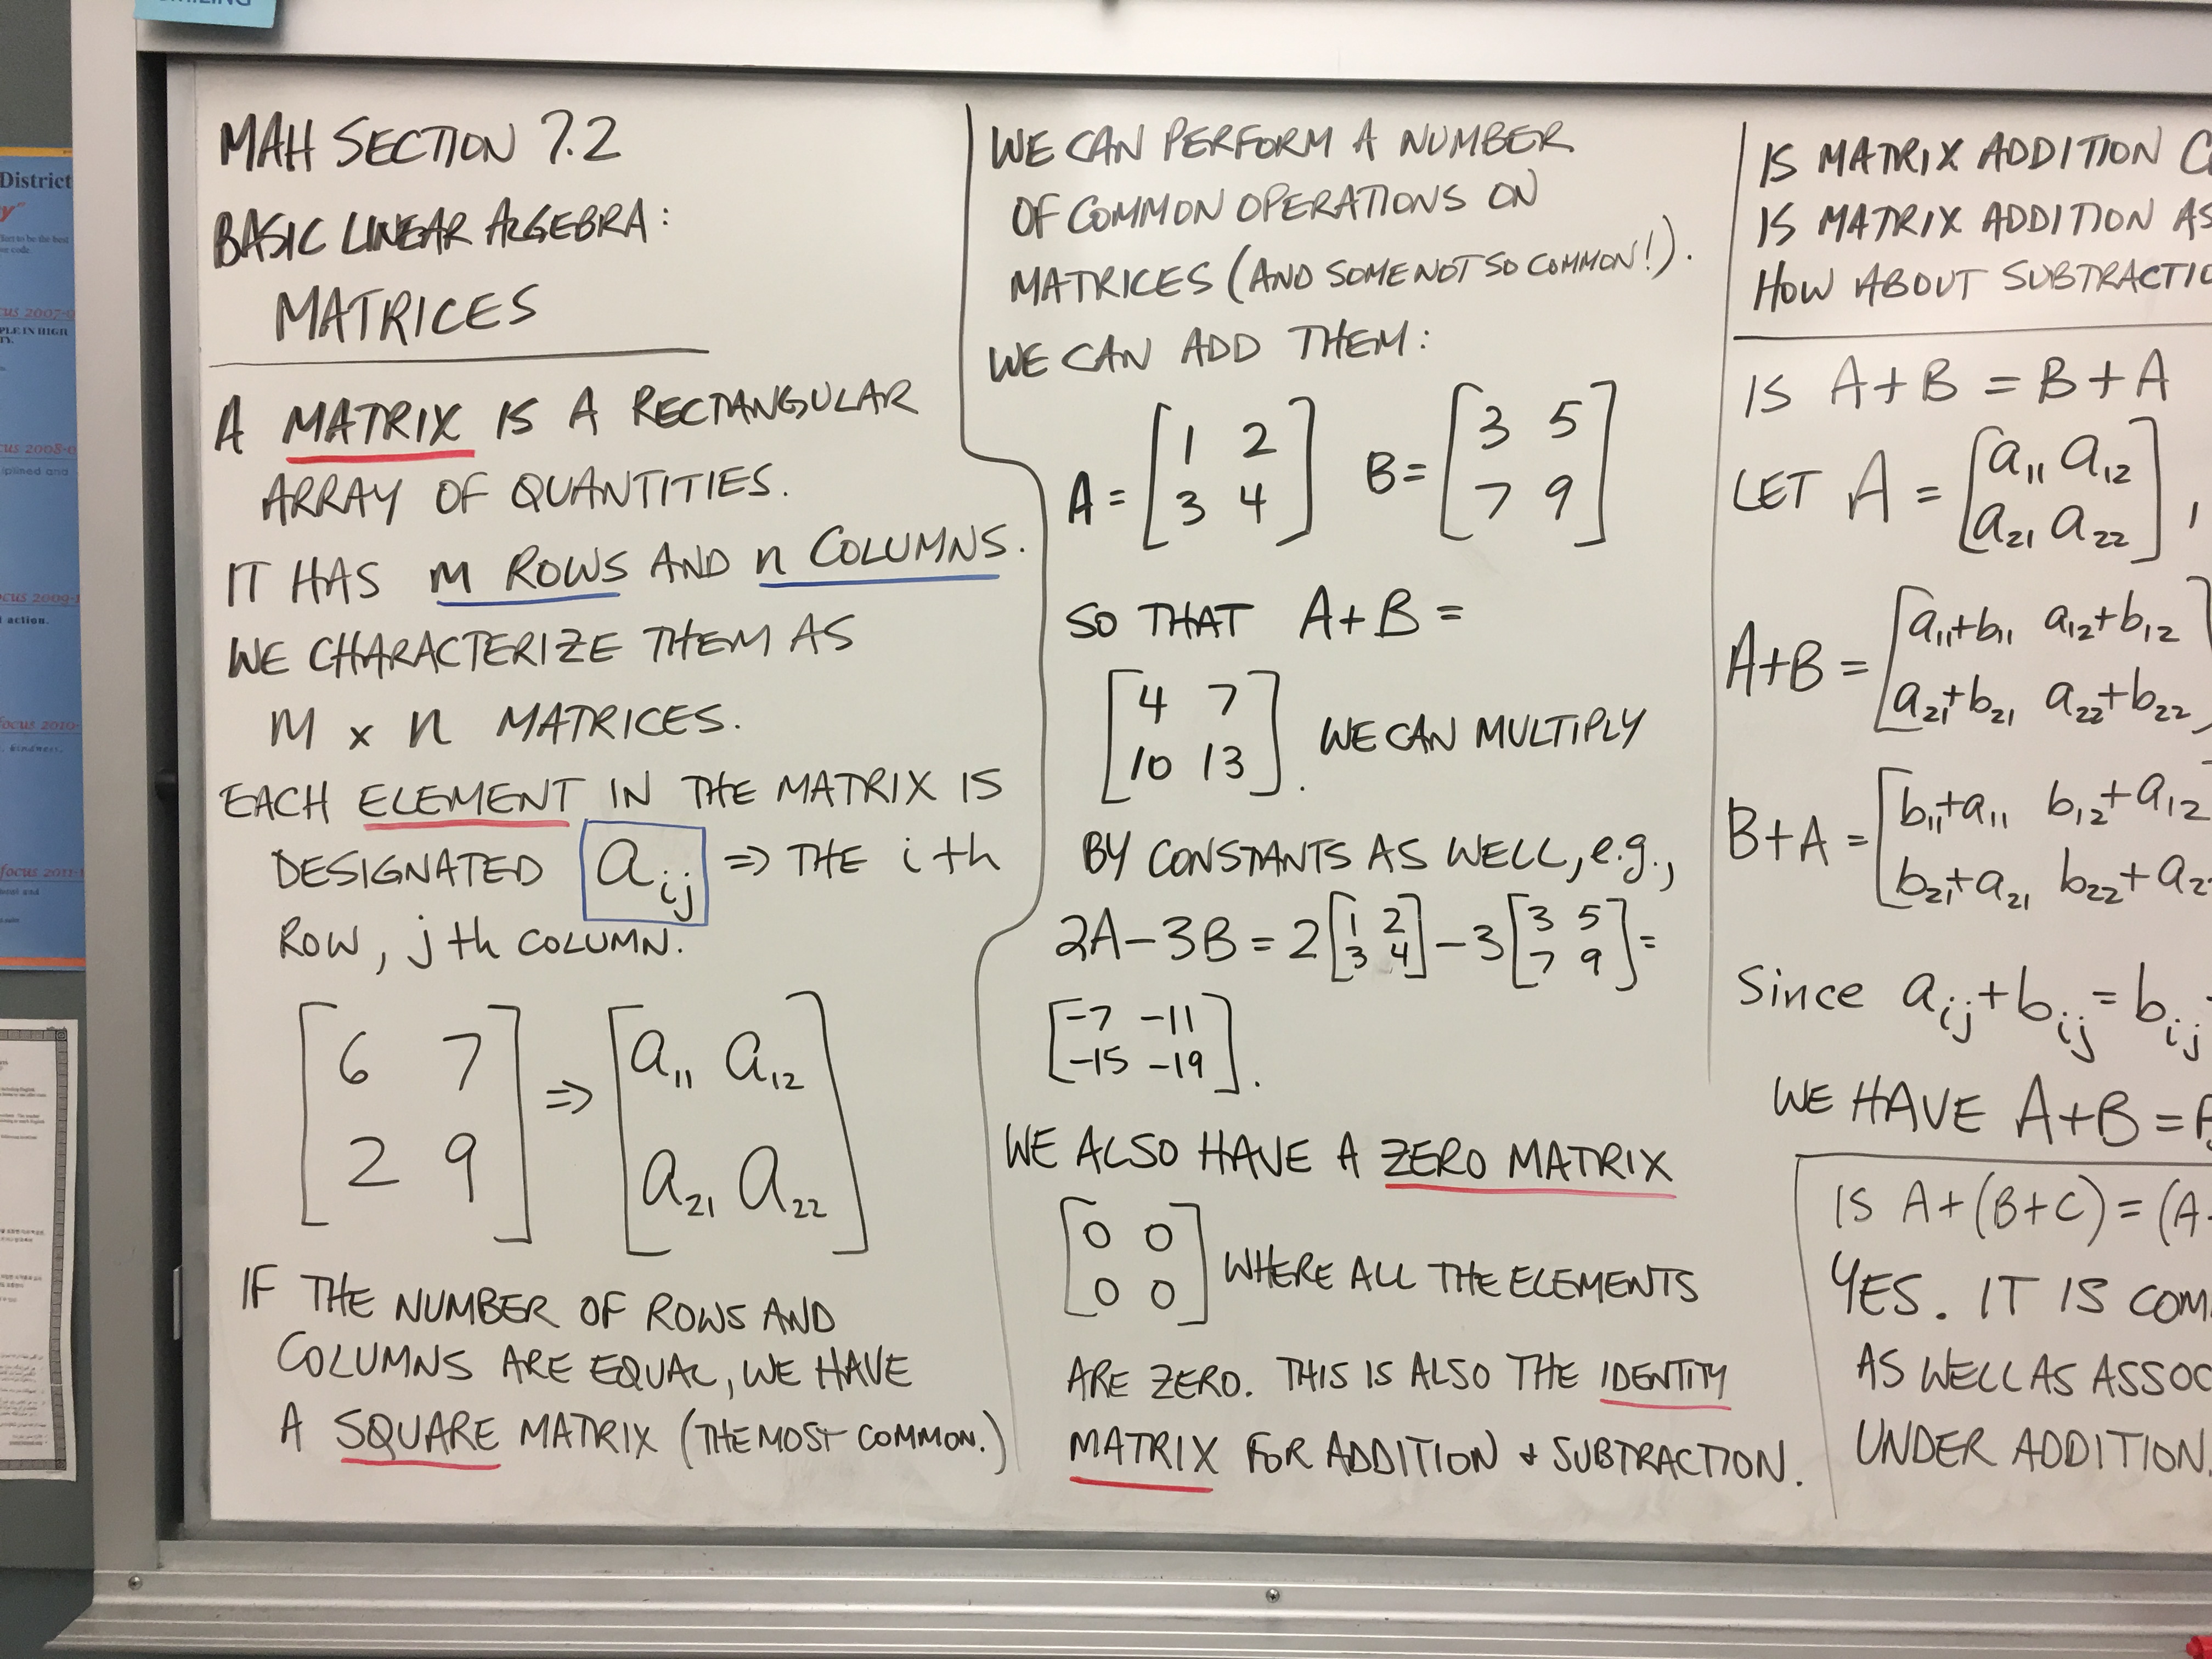 SMILING
District
MAH SECTION 7.2
BASIC LINEAR ALGEBRA:
MATRICES
A MATRIX IS A RECTANGULAR
ARRAY OF QUANTITIES.
IT HAS m ROWS AND n COLUMNS.
WE CHARACTERIZE THEM AS
m x n MATRICES.
EACH ELEMENT IN THE MATRIX IS
DESIGNATED a_ij => THE ith
ROW, jth COLUMN.
[6 7 => [a_11 a_12
2 9] a_21 a_22]
IF THE NUMBER OF ROWS AND
COLUMNS ARE EQUAL, WE HAVE
A SQUARE MATRIX (THE MOST COMMON.)
WE CAN PERFORM A NUMBER
OF COMMON OPERATIONS ON
MATRICES (AND SOME NOT SO COMMON!).
WE CAN ADD THEM:
A = [1 2 B = [3 5
3 4] 7 9]
SO THAT A+B =
[4 7
10 13]. WE CAN MULTIPLY
BY CONSTANTS AS WELL, e.g.,
2A-3B = 2[1 2 -3[3 5
3 4] 7 9] =
[-7 -11
-15 -19].
WE ALSO HAVE A ZERO MATRIX
[0 0
0 0] WHERE ALL THE ELEMENTS
ARE ZERO. THIS IS ALSO THE IDENTITY
MATRIX FOR ADDITION & SUBTRACTION.
IS MATRIX ADDITION C
IS MATRIX ADDITION AS
HOW ABOUT SUBTRACTIO
IS A+B = B+A
LET A = [a_11 a_12
a_21 a_22],
A+B = [a_11+b_11 a_12+b_12
a_21+b_21 a_22+b_22]
B+A = [b_11+a_11 b_12+a_12
b_21+a_21 b_22+a_2
Since a_ij+b_ij = b_ij
WE HAVE A+B =
IS A+(B+C) = (A
YES. IT IS COM
AS WELL AS ASSOC
UNDER ADDITION.